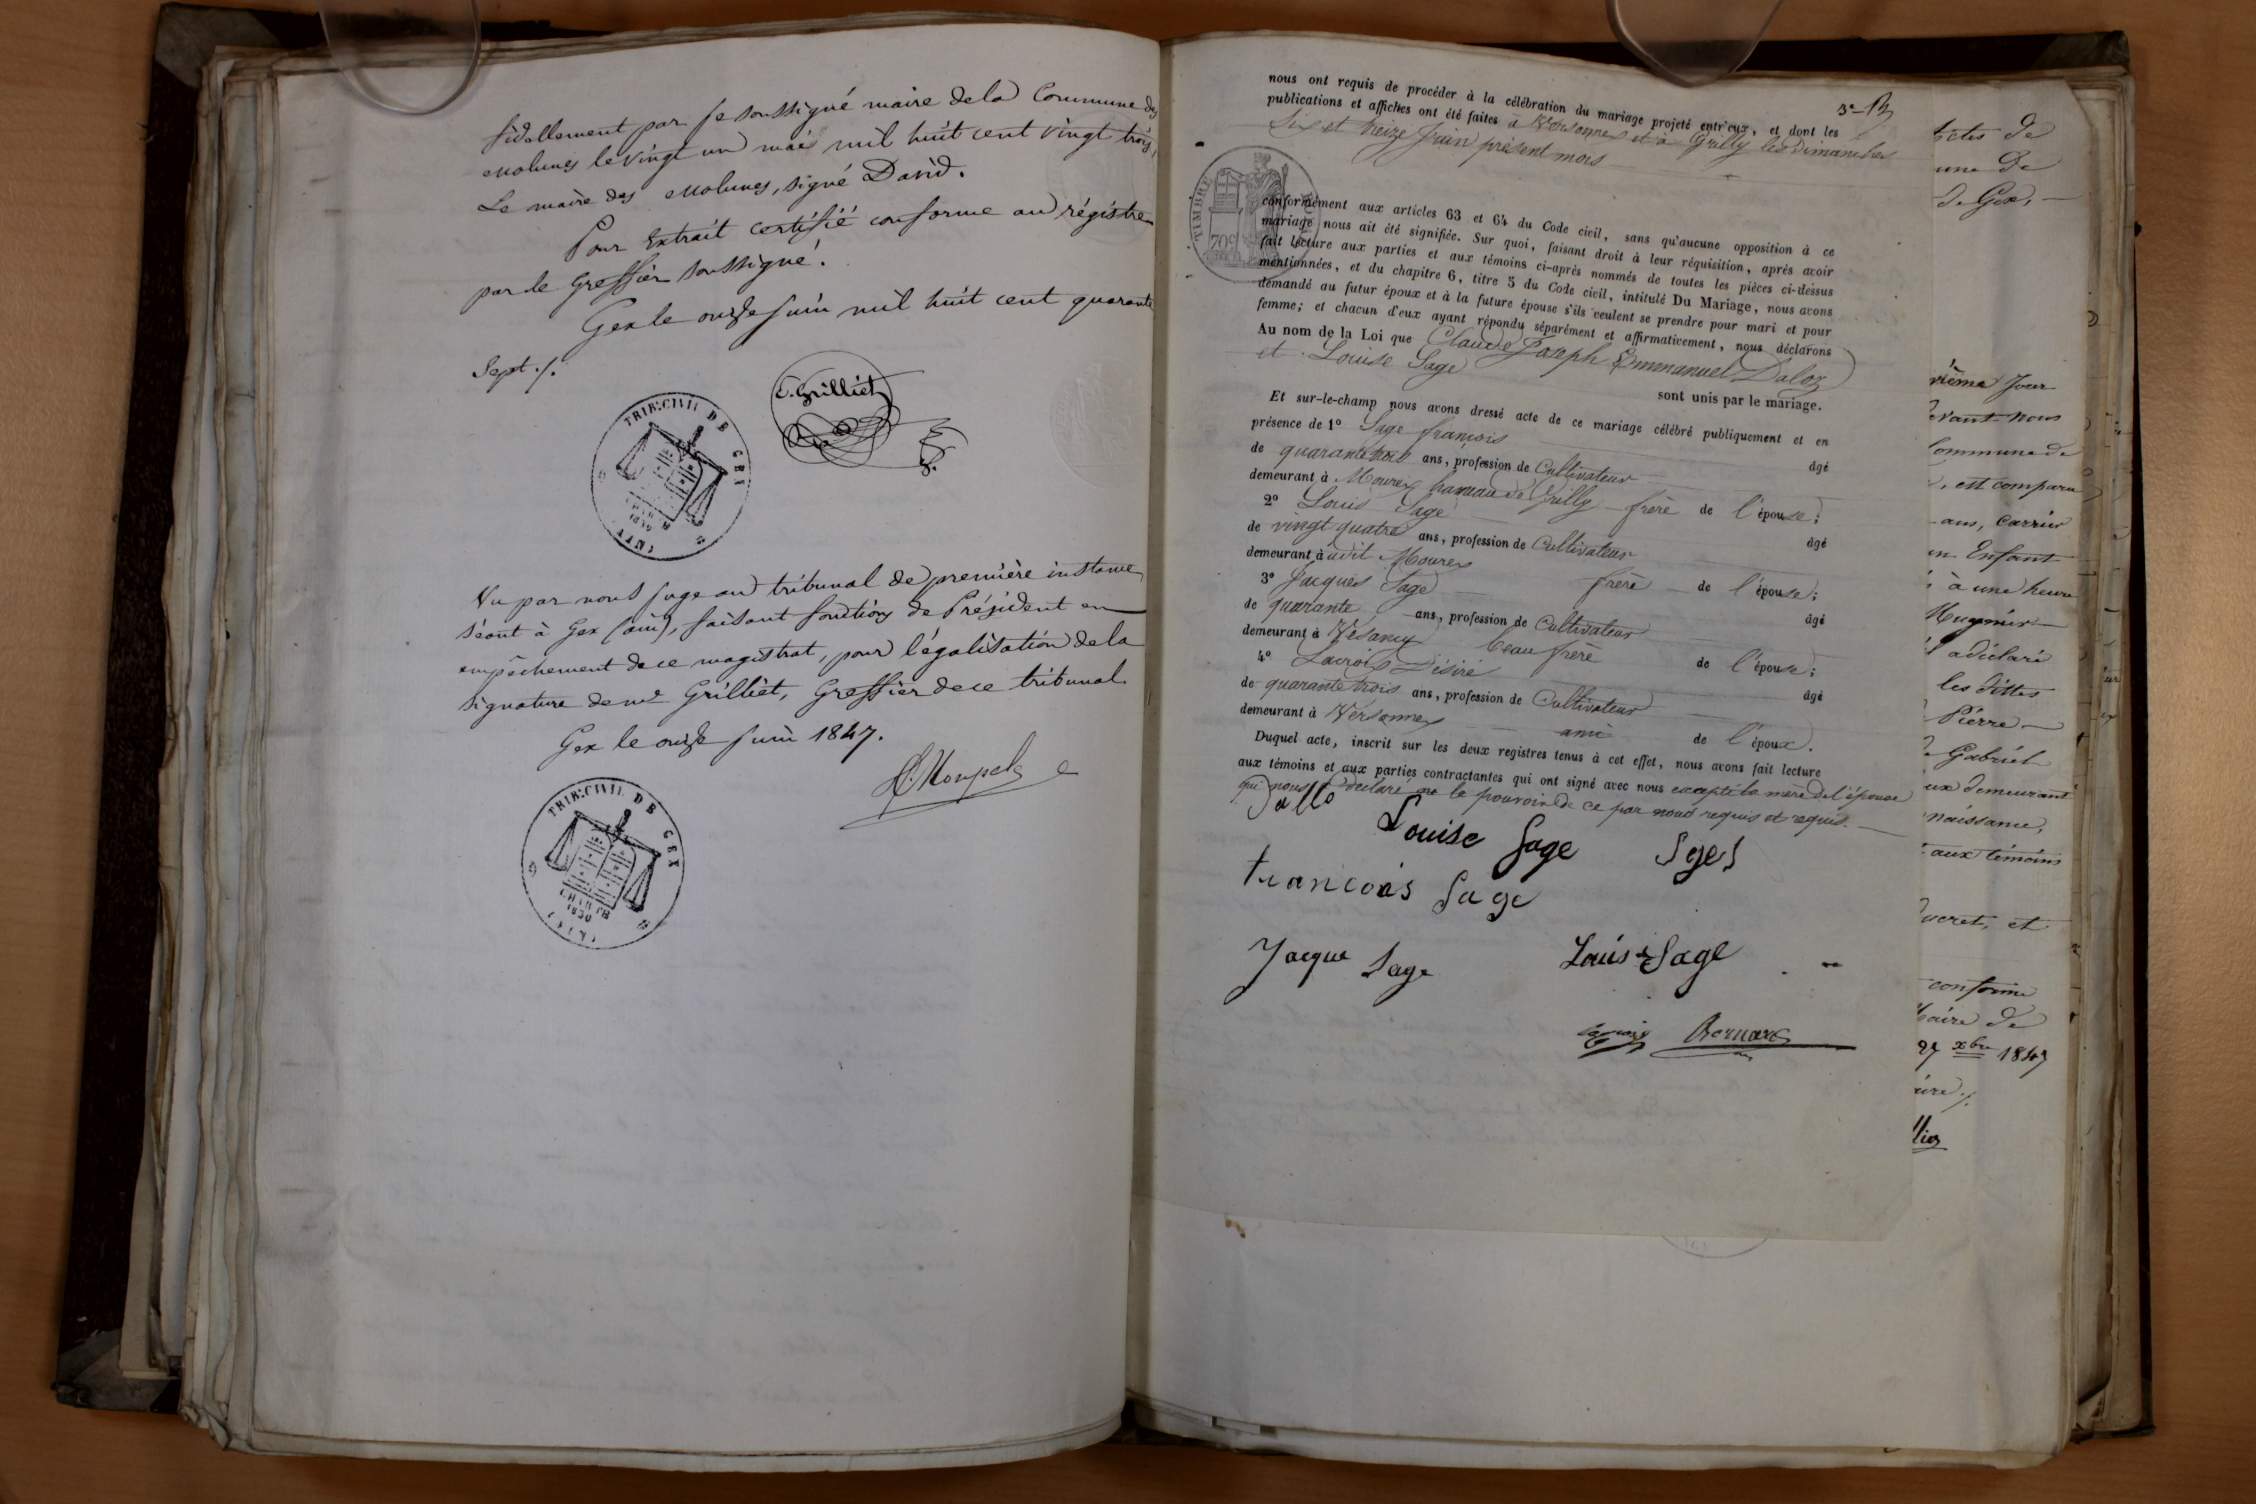 fidellement par je soussigné maire de la Commune des
Molunes le vingt un mai mil huit cent vingt trois,
Le maire des Molunes, signé David.
Pour Extrait certifié conforme au régistre
par le Greffier soussigné.
Gex le onze Juin mil huit cent quarante
Sept ./.
C. Grilliet
TRIB. CIVIL DE GEX
Vu par nous Juge au tribunal de première instance
séant à Gex (ain), faisant fonctions de Président en
empêchement de ce magistrat, pour légalisation de la
signature de me Grilliet, Greffier de ce tribunal
Gex le onze Juin 1847.
TRIB. CIVIL DE GEX
nous ont requis de procéder à la célébration du mariage projeté entr'eux, et dont les
publications et affiches ont été faites à Versonnex et à Grilly les dimanches
Six et treize Juin présent mois
TIMBRE ROYAL
70c
conformément aux articles 63 et 64 du Code civil, sans qu'aucune opposition à ce
mariage nous ait été signifiée. Sur quoi, faisant droit à leur réquisition, après avoir
fait lecture aux parties et aux témoins ci-après nommés de toutes les pièces ci-dessus
mentionnées, et du chapitre 6, titre 5 du Code civil, intitulé Du Mariage, nous avons
demandé au futur époux et à la future épouse s'ils veulent se prendre pour mari et pour
femme; et chacun d'eux ayant répondu séparément et affirmativement, nous déclarons
Au nom de la Loi que Claude Joseph Emmanuel Daloz
et Louise Sage
sont unis par le mariage.
Et sur-le-champ nous avons dressé acte de ce mariage célébré publiquement et en
présence de 1º Sage françois âgé
de quarante trois ans, profession de Cultivateur
demeurant à Mourex hameau de Grilly frère de l'épouse;
2º Louis Sage âgé
de vingt quatre ans, profession de Cultivateur
demeurant à udit Mourex frère de l'épouse;
3º Jacques Sage âgé
de quarante ans, profession de Cultivateur
demeurant à Vesancy beau frère de l'épouse;
4º Lacroix Désiré âgé
de quarante trois ans, profession de Cultivateur
demeurant à Versonnex ami de l'époux.
Duquel acte, inscrit sur les deux registres tenus à cet effet, nous avons fait lecture
aux témoins et aux parties contractantes qui ont signé avec nous excepté la mère de l'épouse
qui nous a déclaré ne le pouvoir de ce par nous requis et requis.
Louise Sage
francois Sage
Jacque Sage Louis Sage
Lacroix Bernard
actes de
une de
de Gex,
Jour
devant nous
Commune de
, est comparu
ans, carrier
un Enfant
à une heure
a déclaré
les dittes
Pierre
Gabriel
demeurant
naissance,
aux témoins
Ducret, et
conforme
Maire de
27 xbre 1847